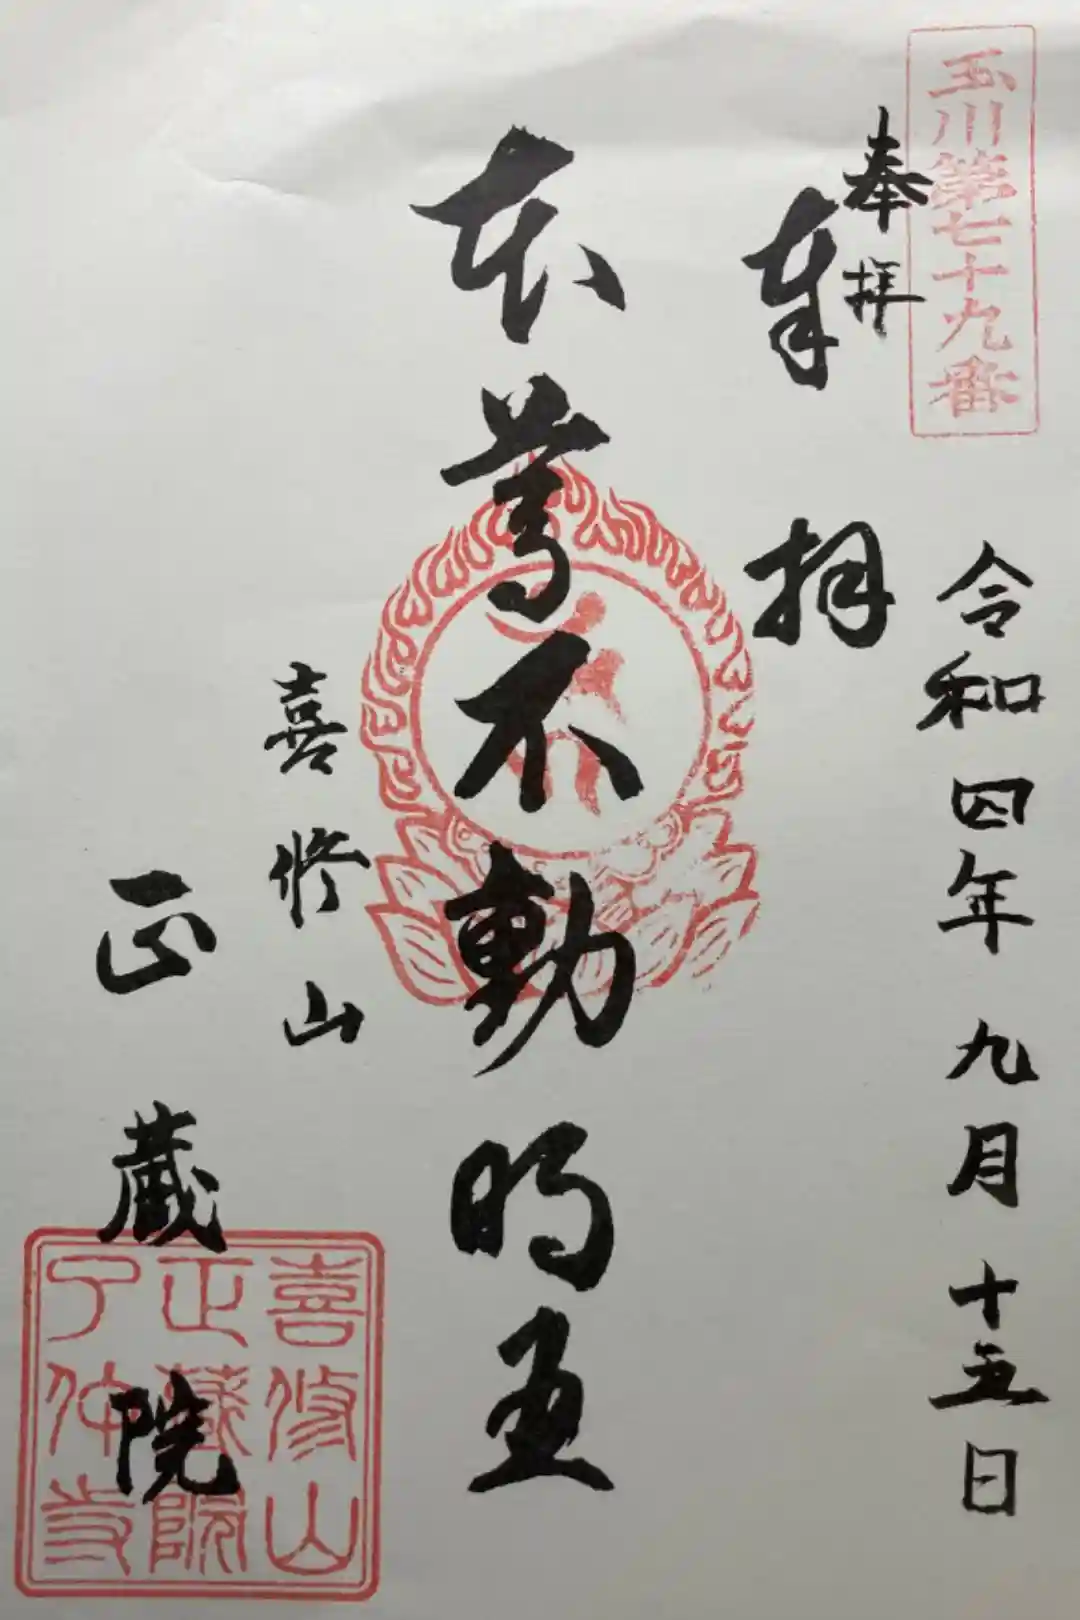 玉川第七十九番
奉拝
令和四年九月十五日
奉拝
本尊不動明王
喜修山
正蔵院
喜修山
正蔵院